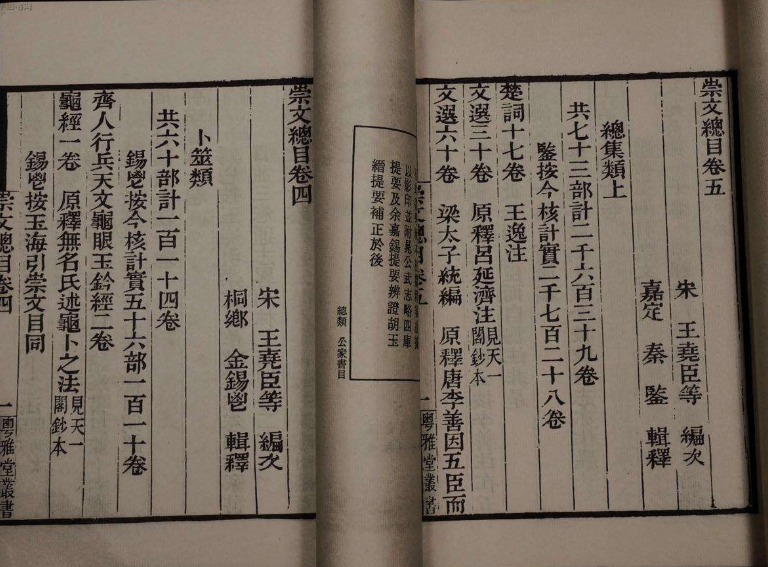 崇文總目卷五
宋 王堯臣等 編次
嘉定 秦鑒 輯釋
總集類上
共七十三部計二千六百三十九卷
鑒按今核計實二千七百二十八卷
楚詞十七卷 王逸注
文選三十卷 原釋呂延濟注見天一閣鈔本
文選六十卷 梁太子統編 原釋唐李善因五臣而
粵雅堂叢書
以影印並附晁公武志略四庫
提要及余嘉錫提要辨證胡玉
縉提要補正於後
總類 公家書目
崇文總目卷四
宋 王堯臣等 編次
桐鄉 金錫鬯 輯釋
卜筮類
共六十部計一百一十四卷
錫鬯按今核計實五十六部一百一十卷
齊人行兵天文龜眼玉鈐經二卷
龜經一卷 原釋無名氏述龜卜之法見天一閣鈔本
錫鬯按玉海引崇文目同
崇文總目卷四
一
粵雅堂叢書